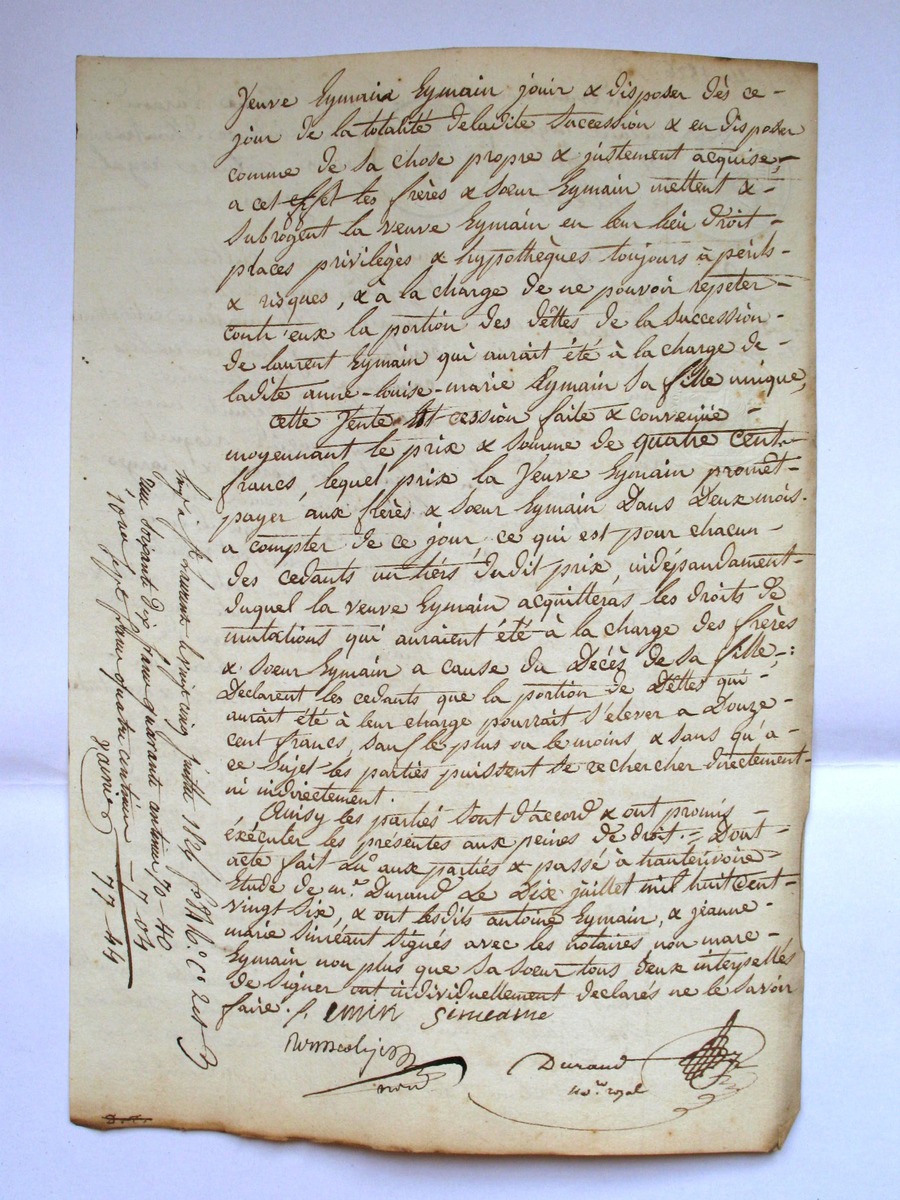 Veuve Eymain Eymain jouir & disposer dès ce -
jour de la totalité deladite Succession & en disposer
comme de sa chose propre & justement acquise, -
a cet effet les frères & Sœur Eymain mettent & -
Subrogent la veuve Eymain en leur lieu droit -
places privilèges & hypothèques toujours à périls -
& risques, & à la charge de ne pouvoir repeter -
contr'eux la portion des dêttes de la Succession -
de laurent Eymain qui aurait été à la charge de -
ladite anne-louise-marie Eymain sa fille unique,
cette Vente Et cession faite & convenue -
moyennant le prix & Somme de quatre cent -
francs, lequel prix la Veuve Eymain promêt -
payer aux frères & Sœur Eymain Dans Deux mois -
a compter de ce jour, ce qui est pour chacun -
des cedants un tiers dudit prix, indépandament -
duquel la veuve Eymain acquitteras les droits de
mutations qui auraient été à la charge des frères
& Sœur Eymain a cause du Décès de sa fille, - :
Déclarent les cedants que la portion de Dêttes qui -
aurait été à leur charge pourrait s'élever a Douze -
cent francs, sauf le plus ou le moins & sans qu'a -
ce sujet les parties puissent se rechercher directement -
ni indirectement.
Ainsy les parties sont d'accord & ont promis -
éxécuter les présentes aux peines de droit - Dont -
acte fait Lû aux parties & passé à hauterivoire -
Etude de m.e Durand Le Dix juillet mil huit Cent -
vingt Six, & ont lesdits antoine Eymain, & jeanne -
marie Siméant Signés avec les notaires non marc -
Eymain non plus que Sa Sœur tous deux interpellés
de signer ont individuellement declarés ne le savoir
faire. /.
emin simeame
Durand
no.re royal
juillet 1826
soixante dix francs quarante centimes 70 - 40
10.e sept francs quatre centimes - 7 - 04
77 - 44